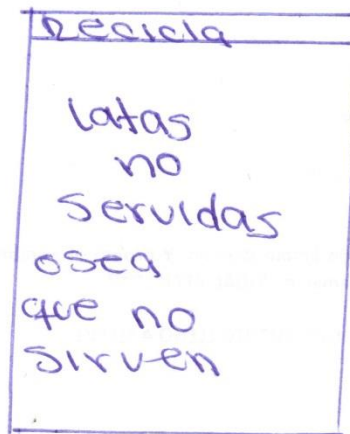 Recicla
latas
no
servidas
osea
que no
sirven